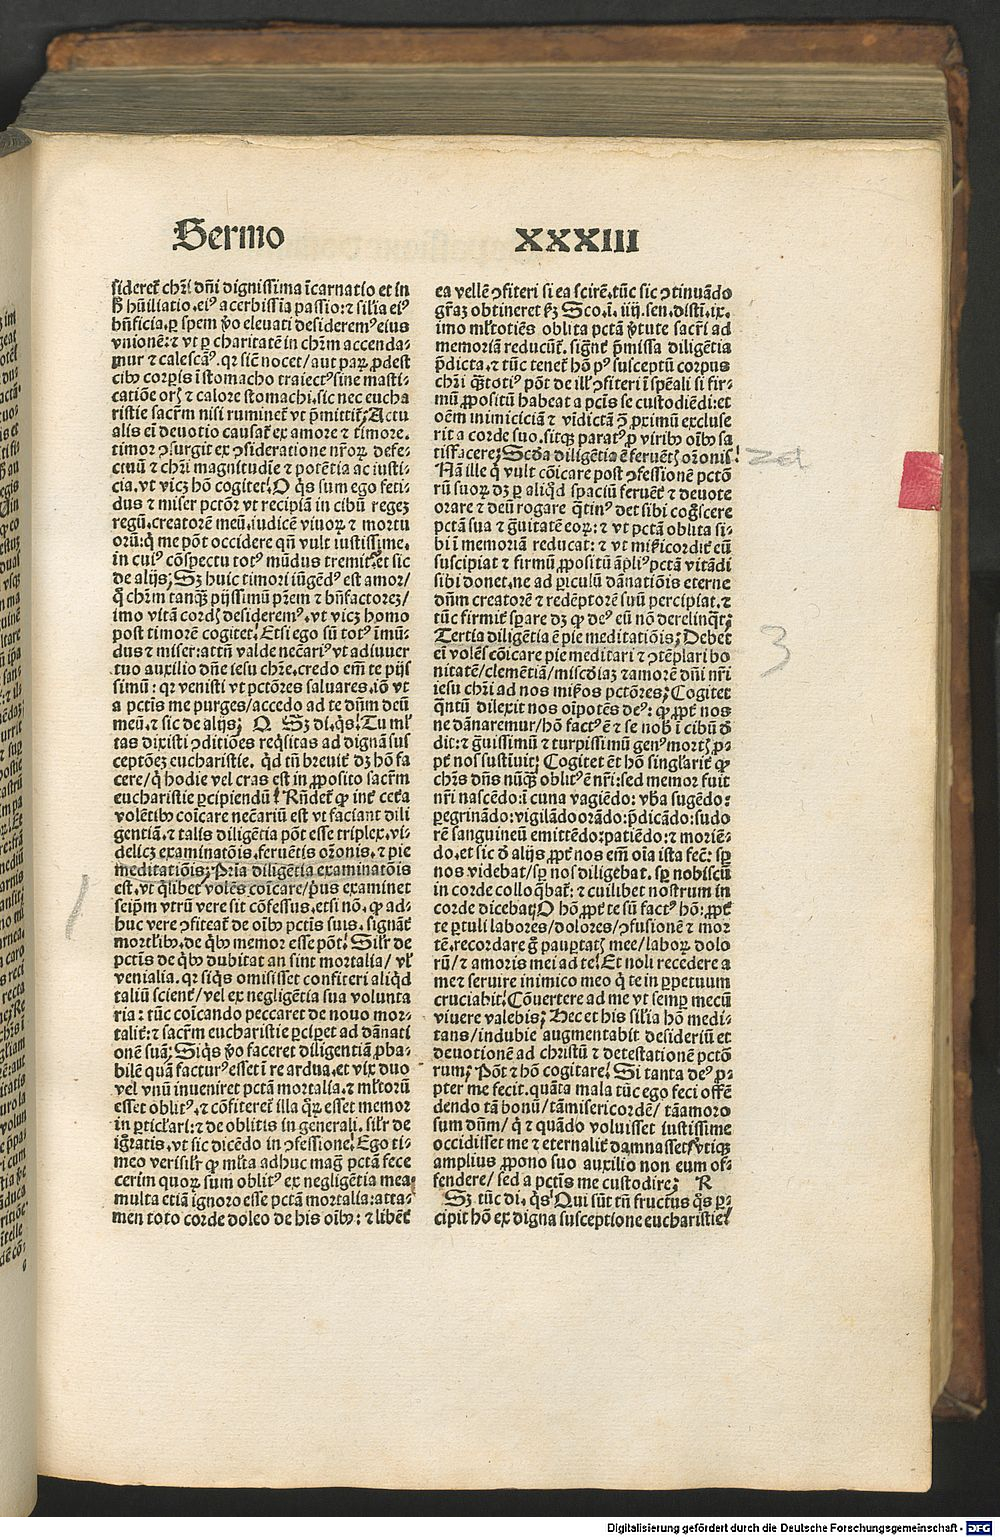 Sermo XXXIII
sideret᷑ chr̄i dn̄i dignissima īcarnatio et in
hūiliatio.eiꝰ acerbissīa passio:⁊ sil̄ia eiꝰ
bn̄ficia.ꝑ spem ꝟo eleuati desideremꝰ eius
vnionē:⁊ vt ꝑ charitatē in chr̄m accenda-
mur ⁊ calescāꝰ.qr̄ sic̄ nocet/aut paꝝ ꝓdest
cibꝰ corpīs ī stomacho traiectꝰ sine masti-
catiōe orꝭ ⁊ calore stomachi.sic nec eucha
ristie sacr̄m nisi ruminet᷑ vt p̄mittit᷑; Actu
alis em̄ deuotio causat᷑ ex amore ⁊ timore.
timor ↄsurgit ex ↄsideratione nr̄oꝝ defe-
ctuū ⁊ chr̄i magnitudīe ⁊ potētia ac iusti-
cia.vt vicꝫ hō cogitet. O q̄s sum ego feti-
dus ⁊ miser pctōr vt recipiā in cibū regeꝫ
regū.creatorē meū.iudicē viuoꝝ ⁊ mortu
orū:q̄ me pōt occidere qn̄ vult iustissime.
in cuiꝰ cōspectu totꝰ mūdus tremit.et sic
de alijs; Sꝫ huic timori iūgendꝰ est amor/
q̄ chr̄m tanqꝫ pijssimū pr̄em ⁊ bn̄factoreꝫ/
imo vitā cordꝭ desideremꝰ.vt vicꝫ homo
post timorē cogitet. Etsi ego sū totꝰ īmū-
dus ⁊ miser:attn̄ valde necāriꝰ vt adiuuer
tuo auxilio dn̄e iesu chr̄e.credo em̄ te pijs
simū:qr̄ venisti vt pctōres saluares.iō vt
a pctīs me purges/accedo ad te dn̄m deū
meū.⁊ sic de alijs; Q Sꝫ di.q̄s. Tu ml̄
tas dixisti ↄditiōes reqͥsitas ad dignā sus
ceptōeꝫ eucharistie. qͥd tn̄ breuit᷑ dꝫ hō fa
cere/q̄ hodie vel cras est in ꝓposito sacr̄m
eucharistie ꝑcipiendū? Rn̄det᷑ ꝙ int᷑ cetera
volētibꝰ coīcare necāriū est vt faciant dili
gentiā.⁊ talis diligētia pōt esse triplex.vi-
delicꝫ examinatōis.feruētis orōnis.⁊ pie
meditatiōis; Pria diligētia examinatōis
est.vt qͥlibet volēs coīcare/p̄us examinet
seip̄m vtrū vere sit cōfessus.etsi nō.ꝙ ad-
huc vere ↄfiteat᷑ de oībꝰ pctīs suis.signāt᷑
mortl̄ibꝰ.de qͥbꝰ memor esse pōt. Sil̄r de
pctīs de qͥbꝰ dubitat an sint mortalia/ vl̄
venialia.qr̄ siqͥs omisisset confiteri aliqͥd
taliū scient᷑/vel ex negligētia sua volunta
ria:tūc coīcando peccaret de nouo mor-
talit᷑:⁊ sacr̄m eucharistie ꝑcipet ad dānati
onē suā; Siqͥs ꝟo faceret diligentiā ꝓba-
bilē quā facturꝰ esset ī re ardua.et vix duo
vel vnū inueniret pctā mortalia.⁊ ml̄torū
esset oblitꝰ.⁊ cōfiteret᷑ illa qͦꝝ esset memor
in ꝑticl̄ari:⁊ de oblitis in generali.sil̄r de
igratis.vt sic dicēdo in ↄfessione. Ego ti-
meo verisil̄r ꝙ ml̄ta adhuc magᷓ pctā fece
cerim quoꝝ sum oblitꝰ ex negligētia mea
multa etiā ignoro esse pctā mortalia:atta-
men toto corde doleo de his oībꝰ:⁊ libēt᷑
ea vellē ↄfiteri si ea scirē.tūc sic ↄtinuādo
gr̄aꝫ obtineret ẜꝫ Sco.i.iiij.sen.disti.ix.
imo ml̄totiēs oblita pctā ꝟtute sacr̄i ad
memoriā reducūt᷑.signāt᷑ p̄missa diligētia
p̄dicta.⁊ tūc tenet᷑ hō pꝰ susceptū corpus
chr̄i qͣntotiꝰ pōt de ill̄ ↄfiteri ī sp̄eali si fir-
mū ꝓpositū habeat a pctīs se custodiēdi:et
oēm inimiciciā ⁊ vīdictā ꝯ̄ proximū excluse
rit a corde suo.sitqꝫ paratꝰ ꝓ viribꝰ oībꝰ sa
tisfacere; Scd̄a diligētia ē feruētꝭ orōnis.
2da
Nā ille q̄ vult cōicare post ↄfessionē pctō
rū suoꝝ dꝫ ꝑ aliqͥd spaciū feruēt᷑ ⁊ deuote
orare ⁊ deū rogare qͣtinꝰ det sibi cogͦscere
pctā sua ⁊ gͣuitatē eoꝝ:⁊ vt pctā oblita si-
bi ī memoriā reducat:⁊ vt mīcordit᷑ eū
suscipiat ⁊ firmū ꝓpositū āpliꝰ pctā vitādi
sibi donet.ne ad ꝑiculū dānatiōis eterne
dn̄m creatorē ⁊ redēptorē suū percipiat.⁊
tūc firmit᷑ sꝑare dꝫ ꝙ deꝰ eū nō derelinqͣt;
Tertia diligētia ē pie meditatiōis; Debet
3
ei volēs cōicare pie meditari ⁊ ↄtēplari bo
nitatē/clemētiā/miscd̄iaꝫ ⁊ amorē dn̄i nr̄i
iesu chr̄i ad nos mis̄os pctōres; Cogitet
qͣntū dilexit nos oīpotēs deꝰ: ꝙ ꝓpt᷑ nos
ne dānaremur/hō factꝰ ē ⁊ se nob̄ ī cibū de
dit:⁊ gͣuissimū ⁊ turpissimū genꝰ mortꝭ ꝓ-
pt᷑ nos sustīuit; Cogitet ēt hō singl̄arit᷑ ꝙ
chr̄s dn̄s nūqꝫ oblitꝰ ē nr̄i:sed memor fuit
nr̄i nascēdo:ī cuna vagiēdo: vb̄a sugēdo:
ꝑegrinādo:vigilādo orādo:p̄dicādo:sudo
rē sanguineū emittēdo:patiēdo:⁊ moriē-
do.et sic de alijs.ꝓpt᷑ nos em̄ oīa ista fec̄: sꝑ
nos videbat/sꝑ nos diligebat. sꝑ nobiscū
in corde colloqͣbat᷑:⁊ cuilibet nostrum in
corde dicebat; O hō.ꝓpt᷑ te sū factꝰ hō:ꝓpt᷑
te ꝑtuli labores/dolores/ↄfusionē ⁊ mor
tē.recordare gͦ pauꝑtatꝭ mee/laboꝝ dolo
rū/⁊ amoris mei ad te. Et noli recedere a
me ⁊ seruire inimico meo q̄ te in ꝑpetuum
cruciabit. Cōuertere ad me vt semꝑ mecū
viuere valebis; Hec et his sil̄ia hō medi-
tans/indubie augmentabit desideriū et
deuotionē ad christū ⁊ detestationē pctō
rum; Pōt ⁊ hō cogitare. Si tanta deꝰ ꝓ-
pter me fecit.quāta mala tūc ego feci offē
dendo tā bonū/tā misericordē/tā amoro
sum dn̄m/ q̄ ⁊ quādo voluisset iustissime
occidisset me ⁊ eternalit᷑ damnasset vtiqꝫ
amplius ꝓpono suo auxilio non eum of-
fendere/ sed a pctīs me custodire; R
Sꝫ tūc di.q̄s Qui sūt tn̄ fructus q̄s ꝑ-
cipit hō ex digna susceptione eucharistie?
1
Digitalisierung gefördert durch die Deutsche Forschungsgemeinschaft - DFG